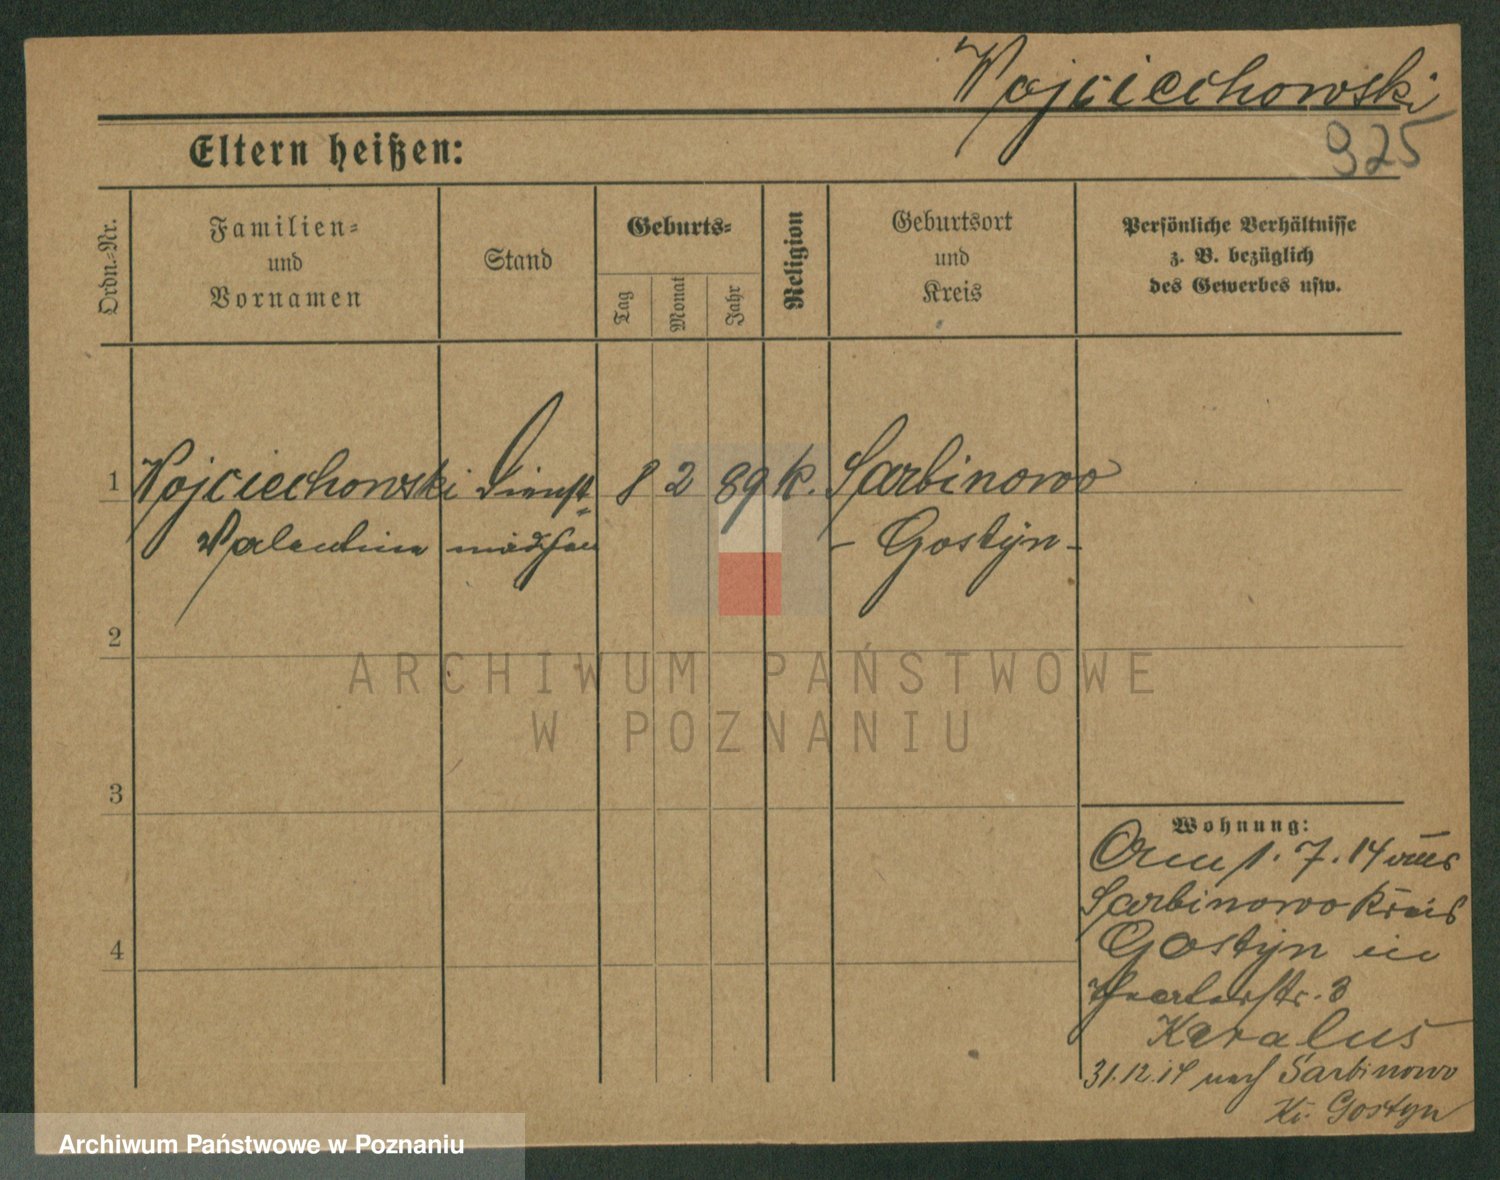 Wojciechowski
925
Eltern heißen:
Ordn.-Nr.
Familien-
und
Vornamen
Stand
Geburts-
Tag
Monat
Jahr
Religion
Geburtsort
und
Kreis
Persönliche Verhältnisse
z. B. bezüglich
des Gewerbes usw.
1 Wojciechowski Dienst- 8 2 89 k. Sarbinowo
Valentina mädchen - Gostyn -
2
ARCHIWUM PAŃSTWOWE
W POZNANIU
3
4
Wohnung:
Am 1. 7. 14 aus
Sarbinowo Kreis
Gostyn in
3
Karalus
31.12.14 nach Sarbinowo
Kr. Gostyn
Archiwum Państwowe w Poznaniu